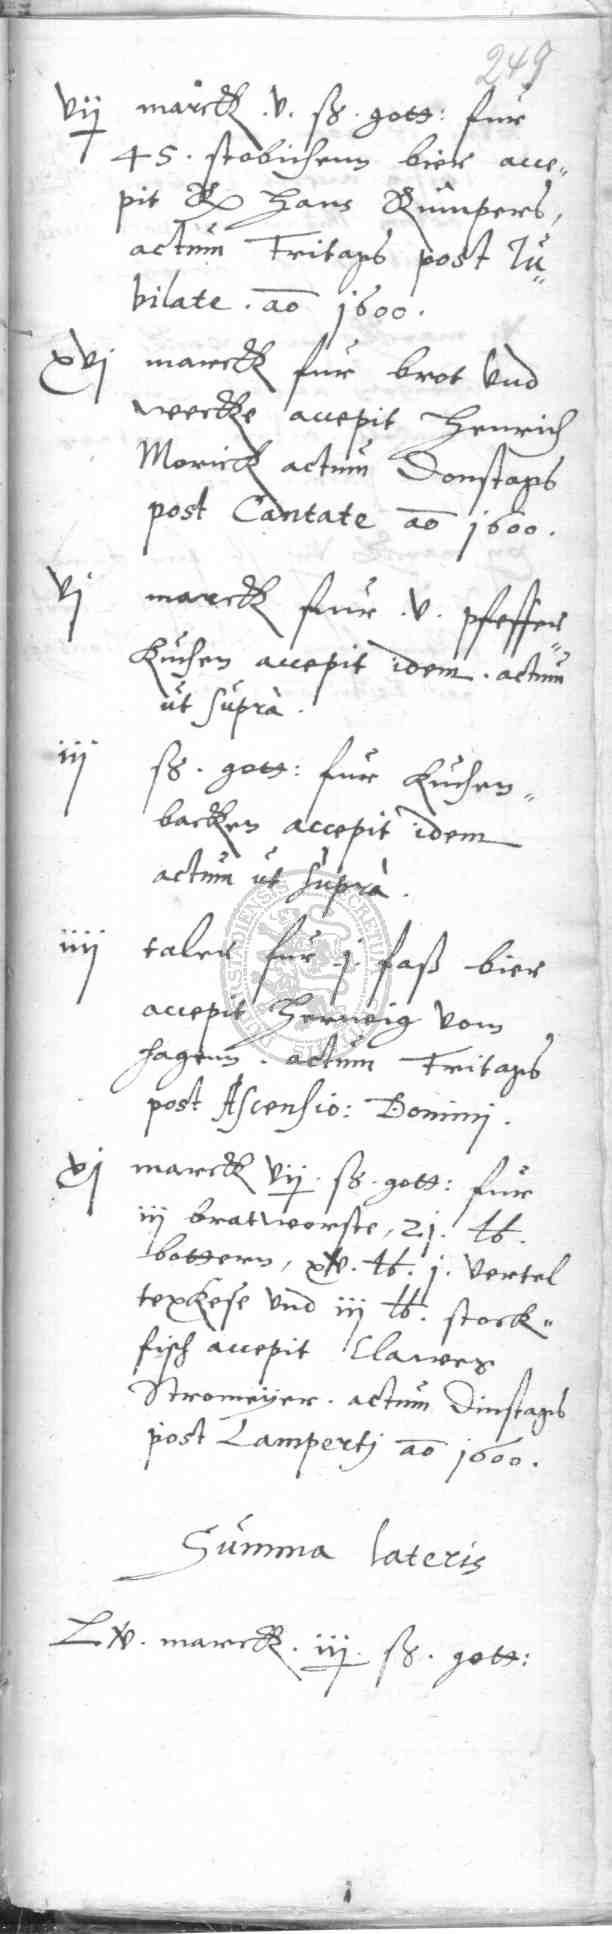 249
vij marck .v. ß. gott: fur
45. stobichenn bier acce„
pit Hans Kumpers,
actum Fritags post Ju„
bilate. ao 1600.
xvj marck fur brot vnd
wecke accepit Henrich
Morinck actum Donstags
post Cantate ao 1600.
vj marck fur .v. pfeffer„
kuchen accepit idem. actum
ut supra.
iij ß. gott: fur kuchen„
backen accepit idem
actum ut supra.
iiij taler fur j. faß bier
accepit Herweig vom
hagenn. actum Fritags
post Ascensio: Domini.
xj marck vij. ß. gott: fur
iij bratworste, 21. lb.
bottern, xv. lb. j. vertel
texkese vnd iij lb. stock„
fisch accepit Clawes
Stromeijer. actum Dinstags
post Lampertj ao 1600.
Summa lateris
Lxv. marck. iij. ß. gott: